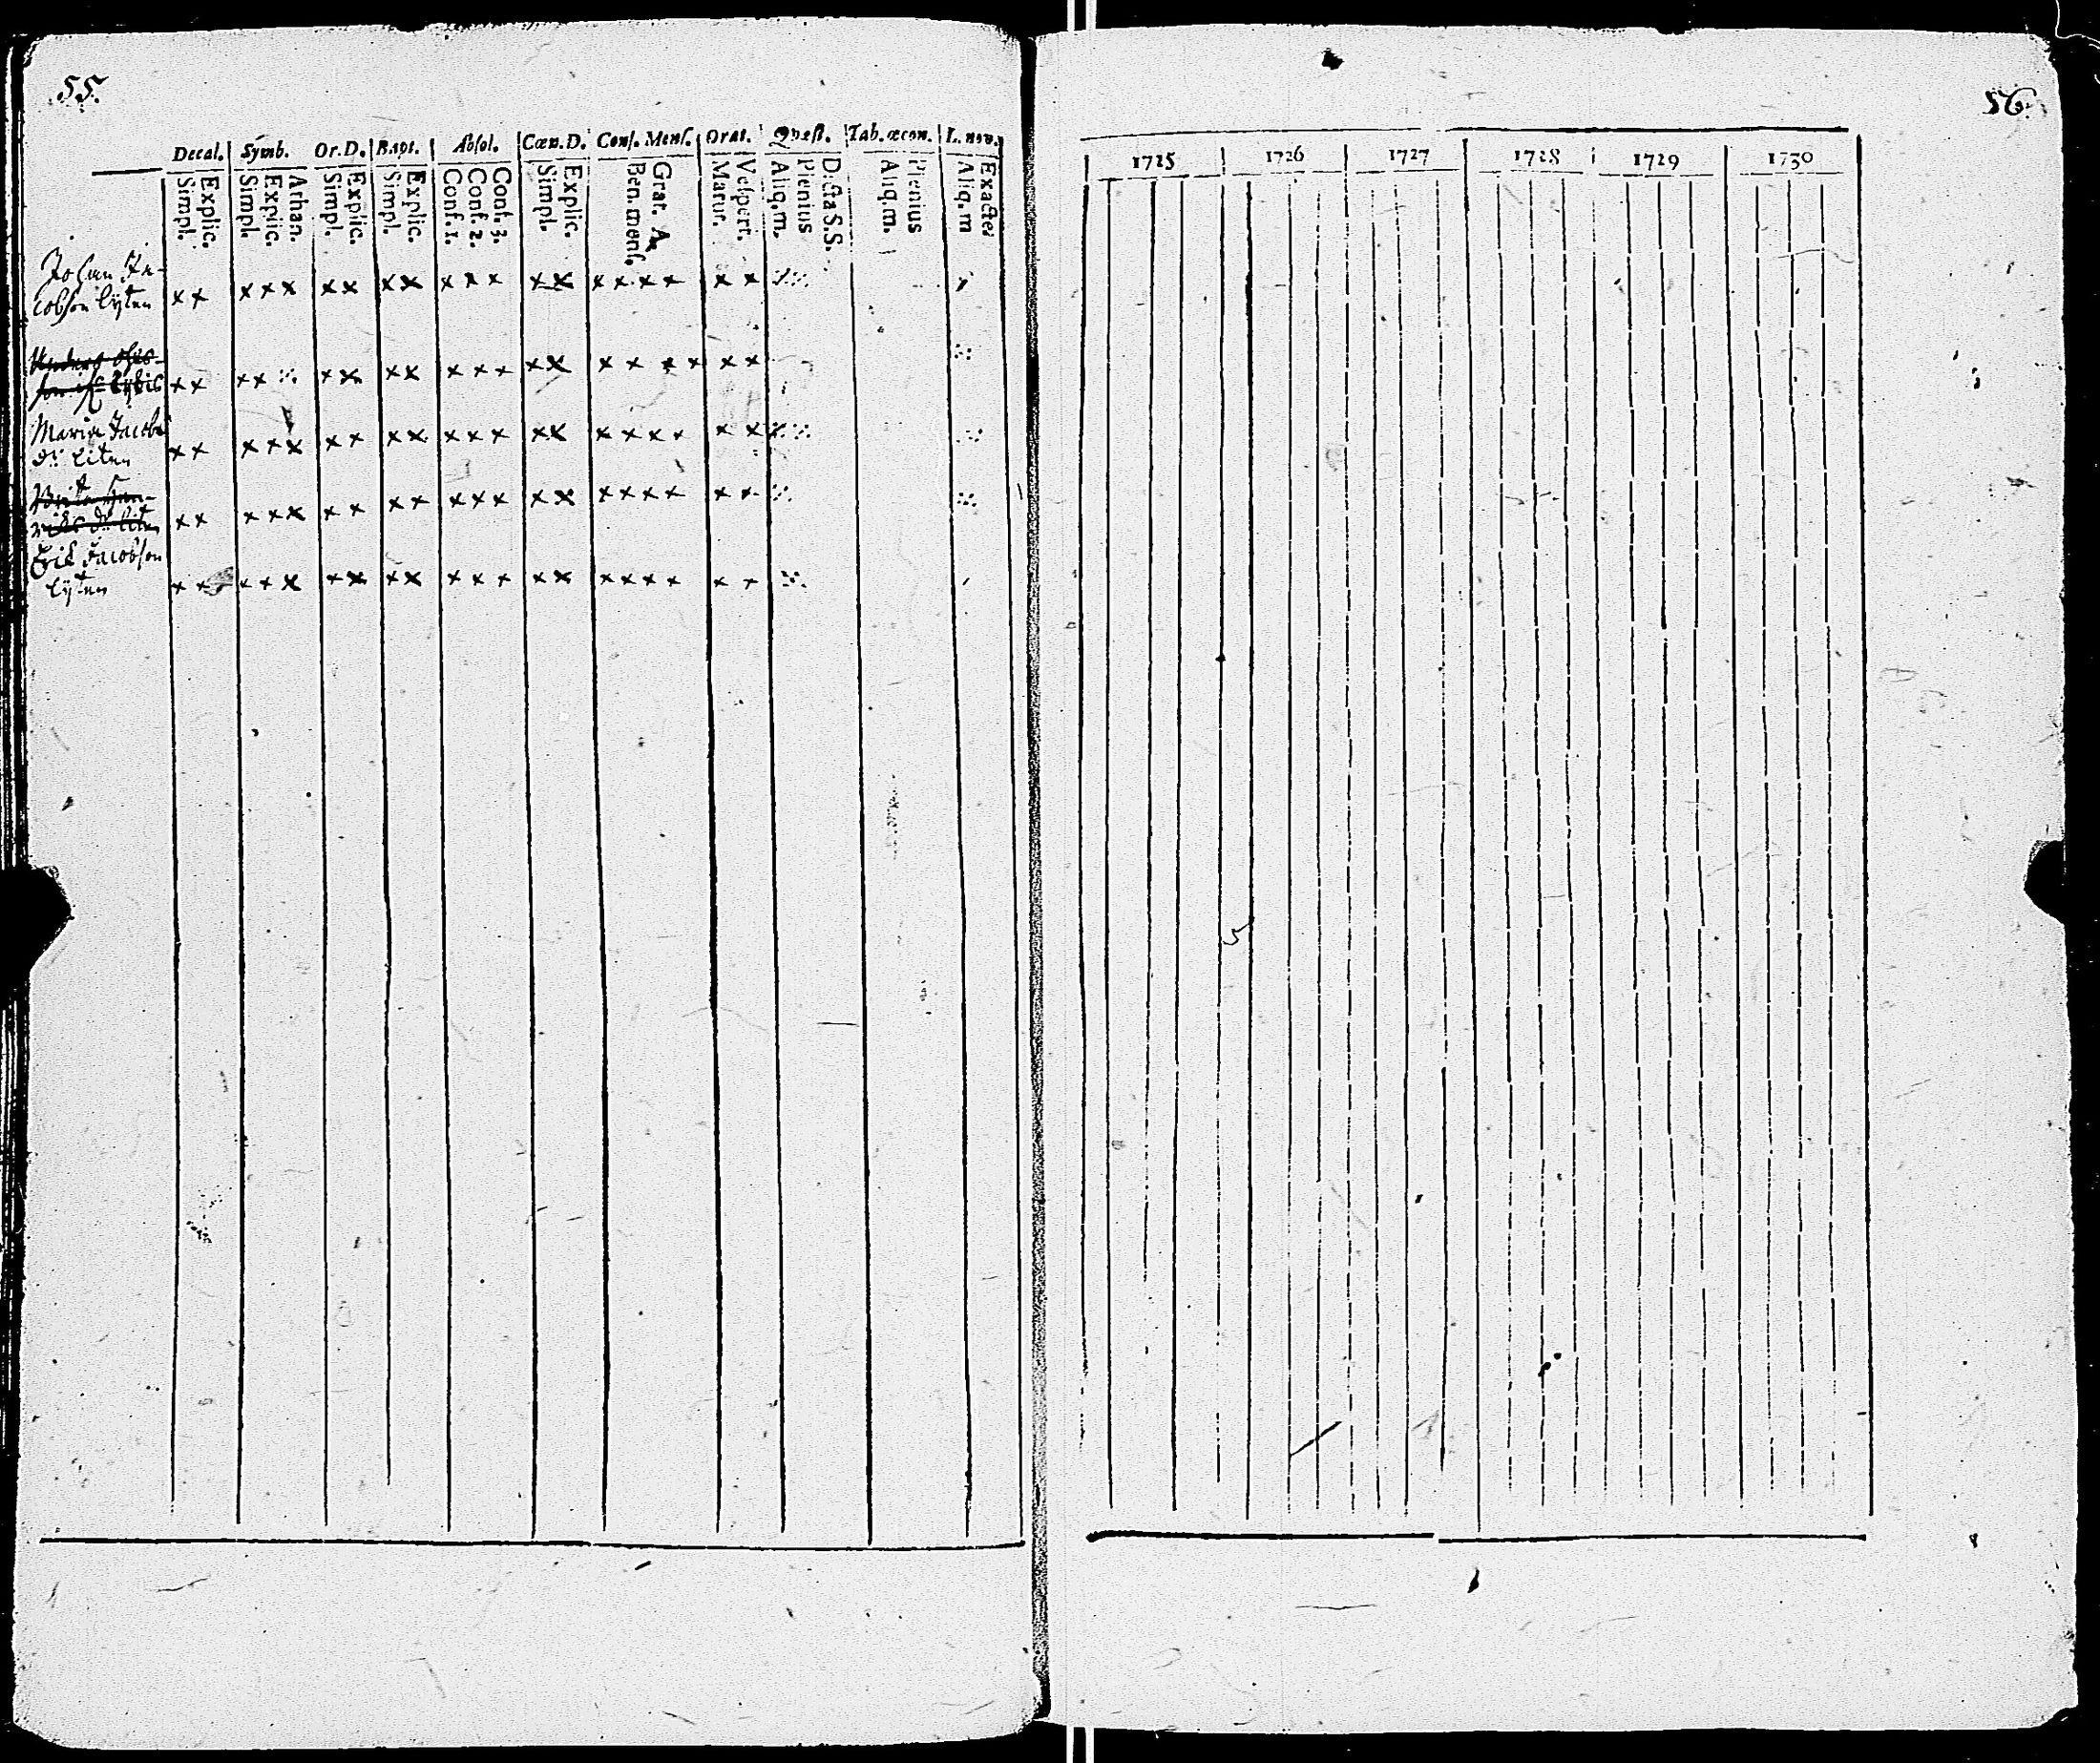 55.
Decal. Symb. Or.D. Bapt. Absol. Cœn.D. Conf. Mens. Orat. Qvæst. Tab. œcon. L. nov.
Simpl. Explic. Simpl. Explic. Athan. Simpl. Explic. Simpl. Explic. Conf. 1. Conf. 2. Conf. 3. Simpl. Explic. Ben. mens. Grat. A. Matut. Vespert. Aliq. m. Plenius Dicta S.S. Aliq. m. Plenius Aliq. m Exacte
Johan Ja-
cobson Lÿten x x x x x x x x x x x x x x x x x x x x
x x x x x x x x x x x x x x x x x x x
Maria Jacobs
dr. Liten x x x x x x x x x x x x x x x x x x x x
Brita Hen-
riks dr. Liten x x x x x x x x x x x x x x x x x x x x
Erik Jacobson
Lÿten x x x x x x x x x x x x x x x x x x x x
56.
1725 1726 1727 1728 1729 1730